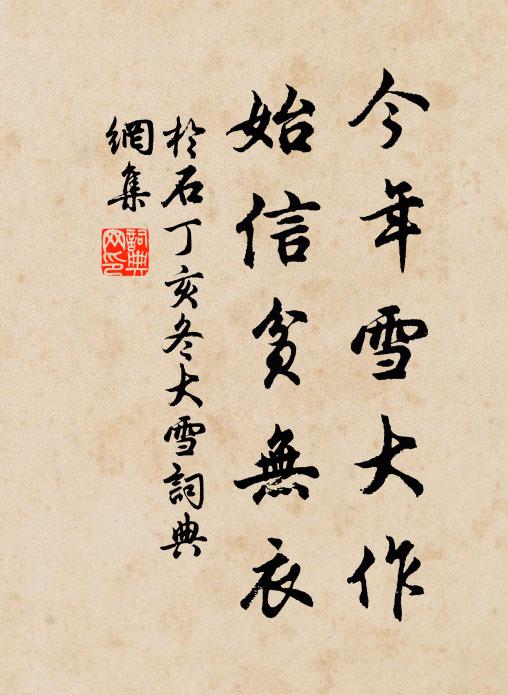 今年雪大作
始信貧無衣
於石丁亥冬大雪詞典
網集
詞典
网印